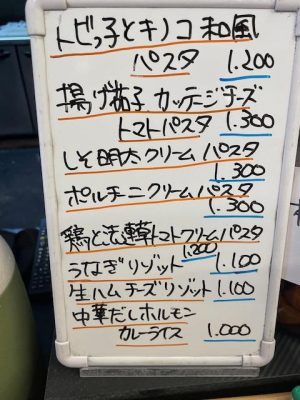 トビっ子とキノコ和風
パスタ 1.200
揚げ茄子 カッテージチーズ
トマトパスタ 1.300
しそ明太クリームパスタ
1.300
ポルチーニクリームパスタ
1.300
鶏とほうれん草トマトクリームパスタ
1.200
うなぎリゾット 1.100
生ハムチーズリゾット 1.100
中華だしホルモン
カレーライス 1.000